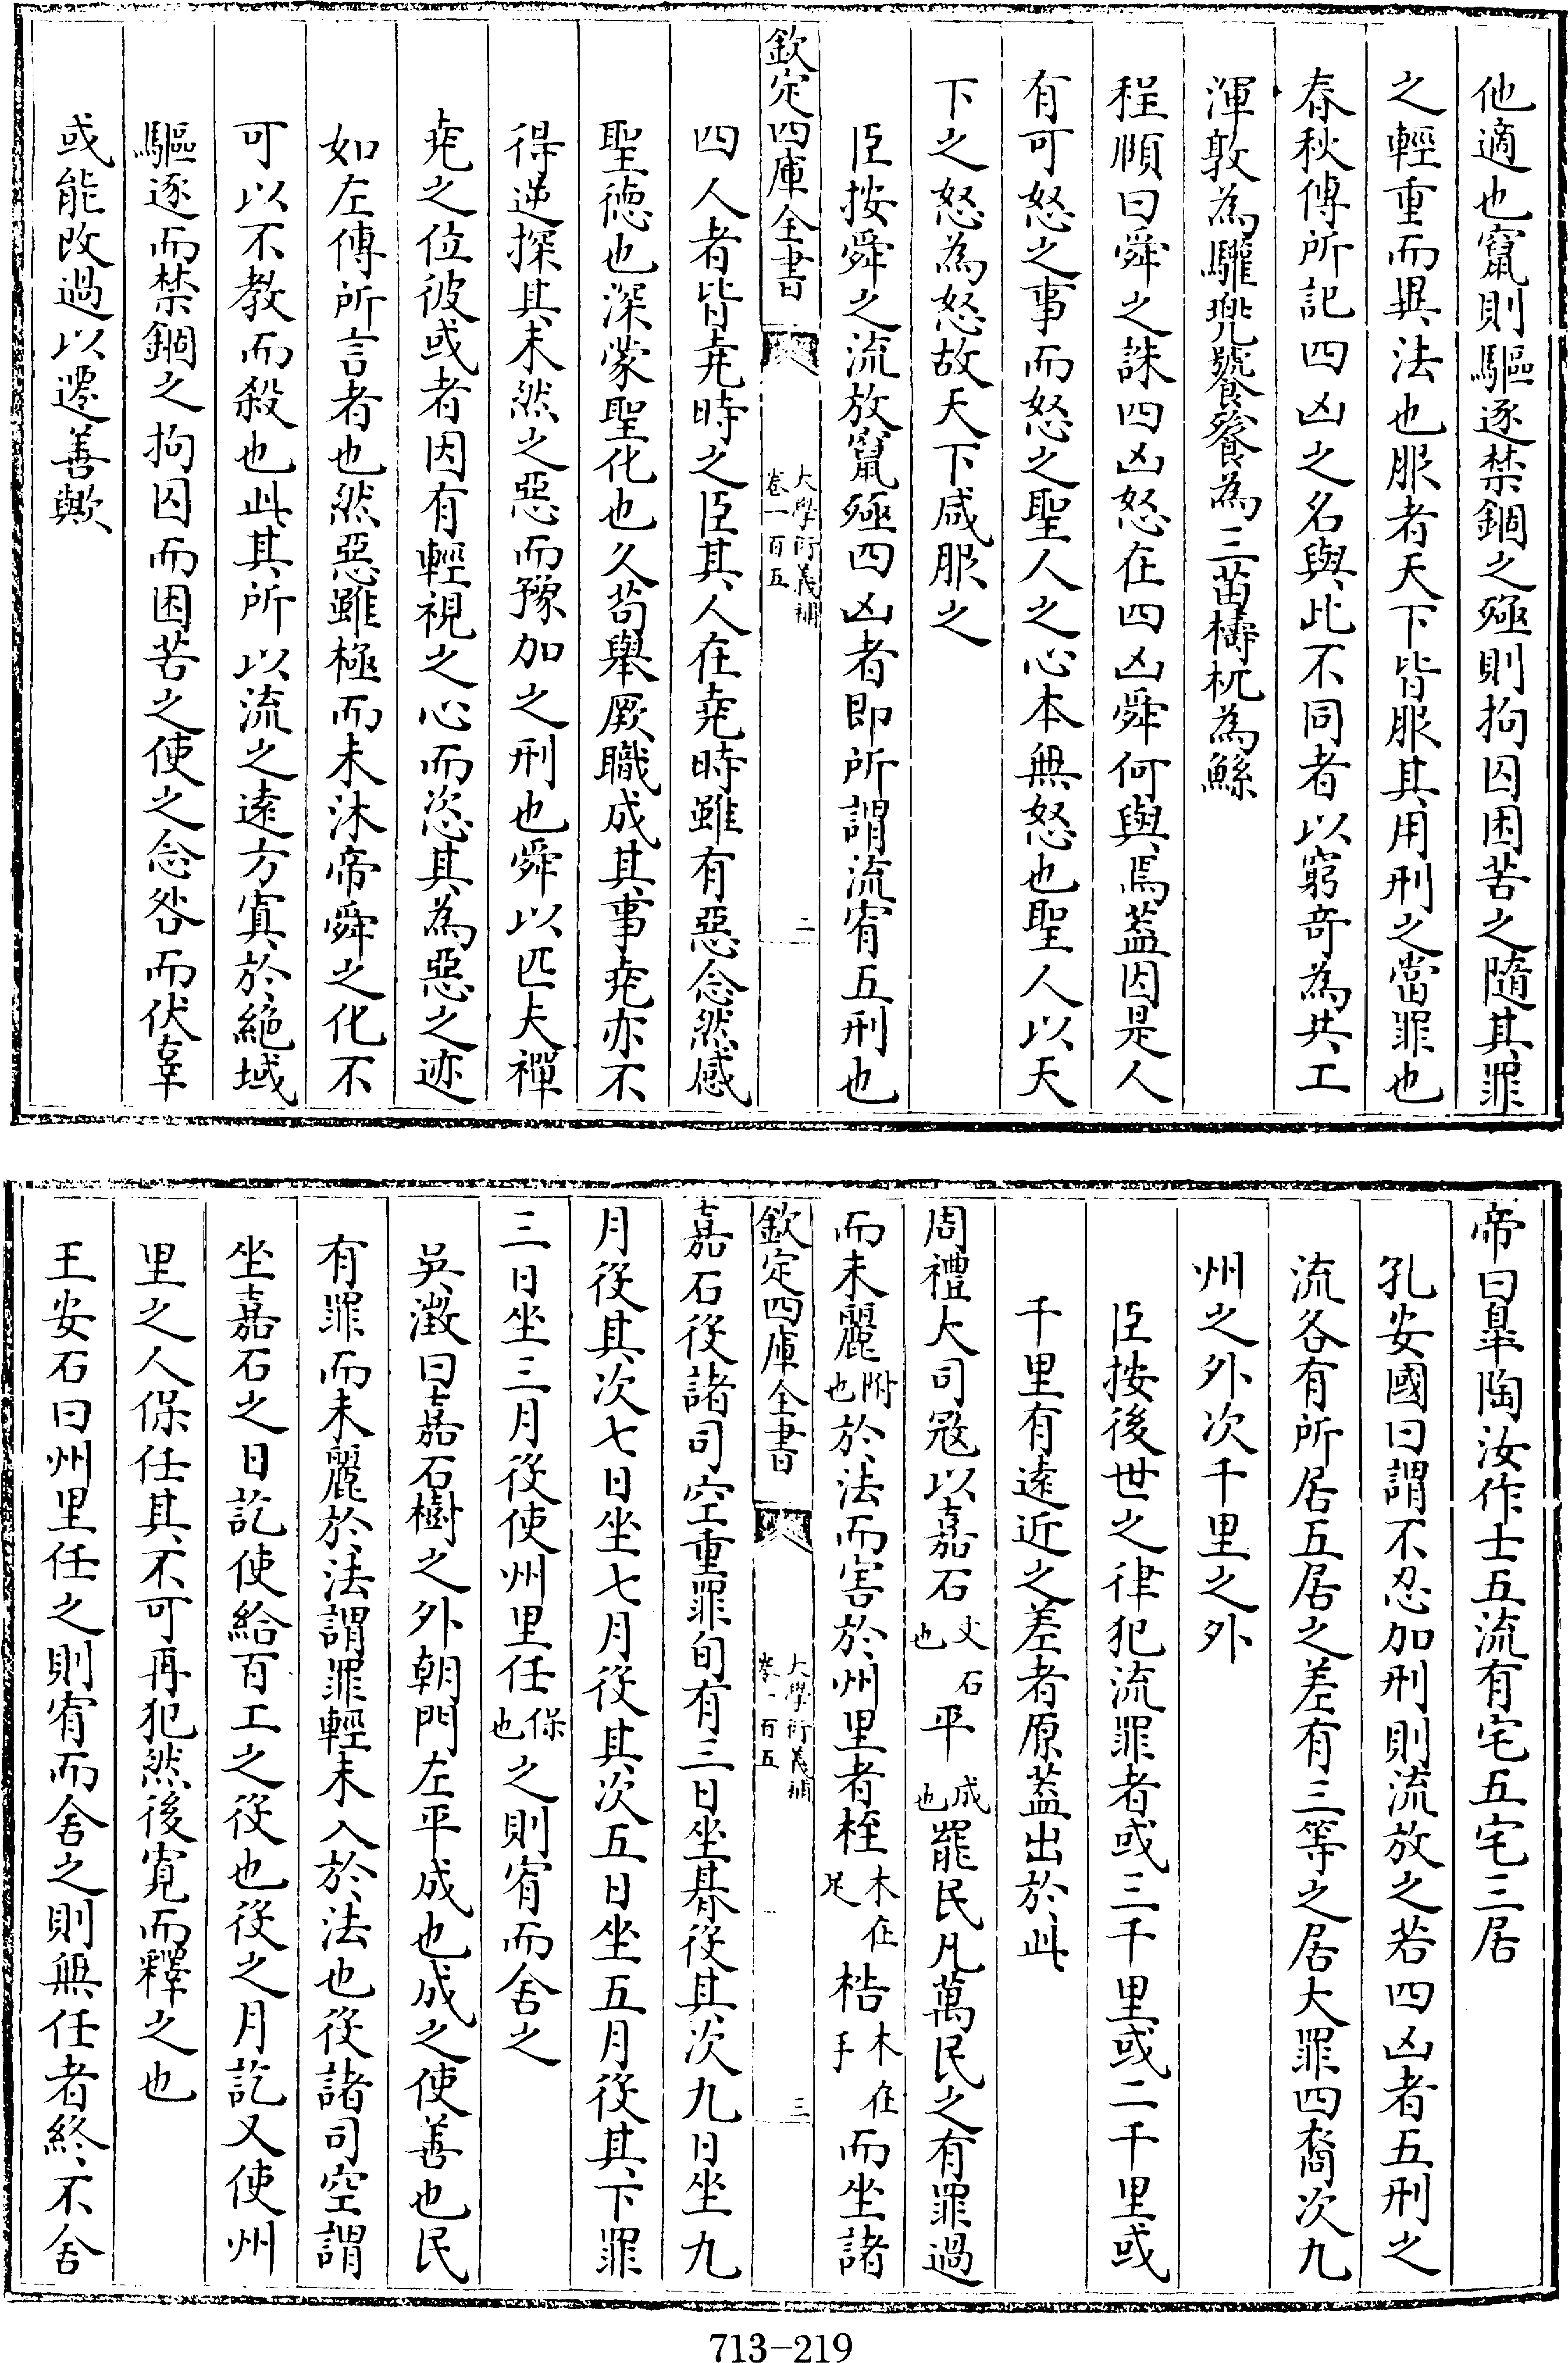 他適也竄則驅逐禁錮之殛則拘囚困苦之隨其罪
之輕重而異法也服者天下皆服其用刑之當罪也
春秋傳所記四凶之名與此不同者以窮奇為共工
渾敦為驩兜饕餮為三苗檮杌為鯀
程顥曰舜之誅四凶怒在四凶舜何與焉蓋因是人
有可怒之事而怒之聖人之心本無怒也聖人以天
下之怒為怒故天下咸服之
臣按舜之流放竄殛四凶者即所謂流宥五刑也
欽定四庫全書 大學衍義補 卷一百五 二
四人者皆堯時之臣其人在堯時雖有惡念然感
聖徳也深蒙聖化也久茍舉厥職成其事堯亦不
得逆探其未然之惡而豫加之刑也舜以匹夫禪
堯之位彼或者因有輕視之心而恣其為惡之迹
如左傳所言者也然惡雖極而未沐帝舜之化不
可以不教而殺也此其所以流之逺方寘於絶域
驅逐而禁錮之拘囚而困苦之使之念咎而伏辜
或能改過以遷善歟
帝曰臯陶汝作士五流有宅五宅三居
孔安國曰謂不忍加刑則流放之若四凶者五刑之
流各有所居五居之差有三等之居大罪四裔次九
州之外次千里之外
臣按後世之律犯流罪者或三千里或二千里或
千里有逺近之差者原蓋出於此
周禮大司寇以嘉石文石也平成也罷民凡萬民之有罪過
而未麗附也於法而害於州里者桎木在足梏木在手而坐諸
欽定四庫全書 大學衍義補 卷一百五 三
嘉石役諸司空重罪旬有三日坐朞役其次九日坐九
月役其次七日坐七月役其次五日坐五月役其下罪
三日坐三月役使州里任保也之則宥而舍之
吳澂曰嘉石樹之外朝門左平成也成之使善也民
有罪而未麗於法謂罪輕未入於法也役諸司空謂
坐嘉石之日訖使給百工之役也役之月訖又使州
里之人保任其不可再犯然後寛而釋之也
王安石曰州里任之則宥而舍之則無任者終不舍
713-219